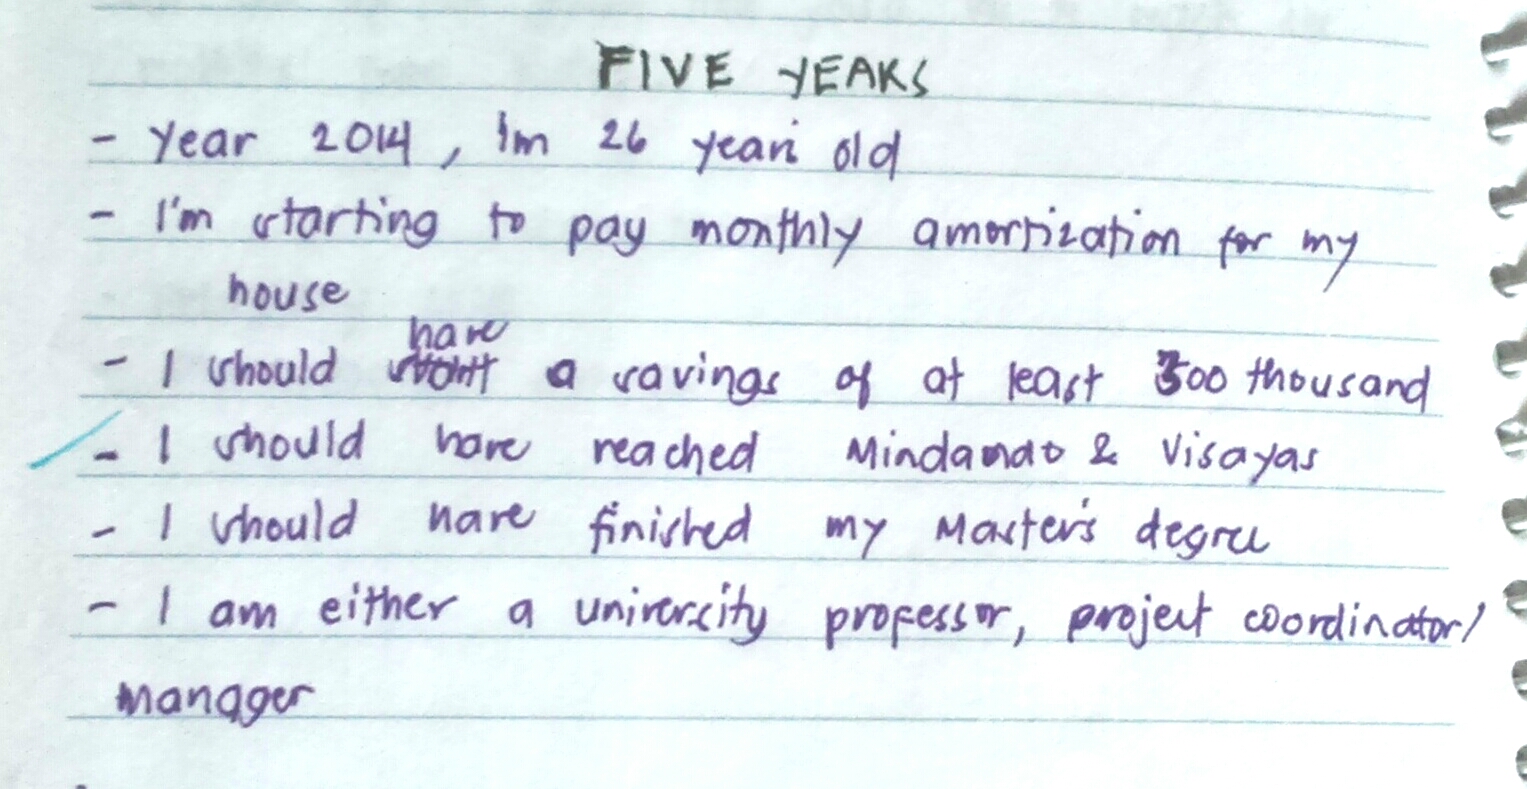 FIVE YEARS
- Year 2014, I'm 26 years old
- I'm starting to pay monthly amortization for my
house
have
- I should a savings of at least 300 thousand
- I should have reached Mindanao & Visayas
- I should have finished my Master's degree
- I am either a university professor, project coordinator/
manager